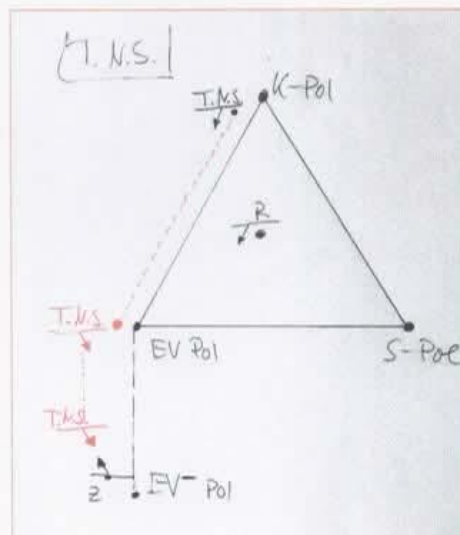 T.N.S.
K-Pol
T.N.S.
R
T.N.S
EV Pol
S-Pol
T.N.S.
Z
EV- Pol